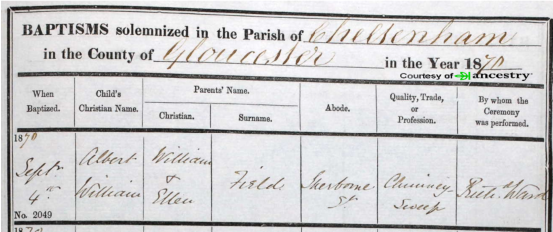 BAPTISMS solemnized in the Parish of Cheltenham
in the County of Gloucester in the Year 1870
Courtesy of ancestry
When Baptized.
Child's Christian Name.
Parents' Name.
Christian.
Surname.
Abode.
Quality, Trade, or Profession.
By whom the Ceremony was performed.
1870
Septr 4th
No. 2049
Albert William
William & Ellen
Fields
Sherborne St
Chimney Sweep
Ward
187